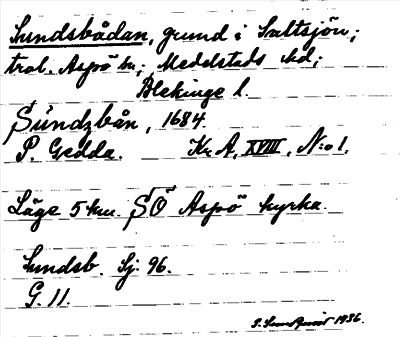 Sundsbådan, grund i Saltsjön;
trol. Aspö sn; Medelstads hd;
Blekinge l.
Sündzbån, 1684.
P. Gedda. Kr A, XVIII, N:o 1.
Läge 5 km. SÖ Aspö kyrka.
Sundsb. Sj. 96.
G. 11.
1936.